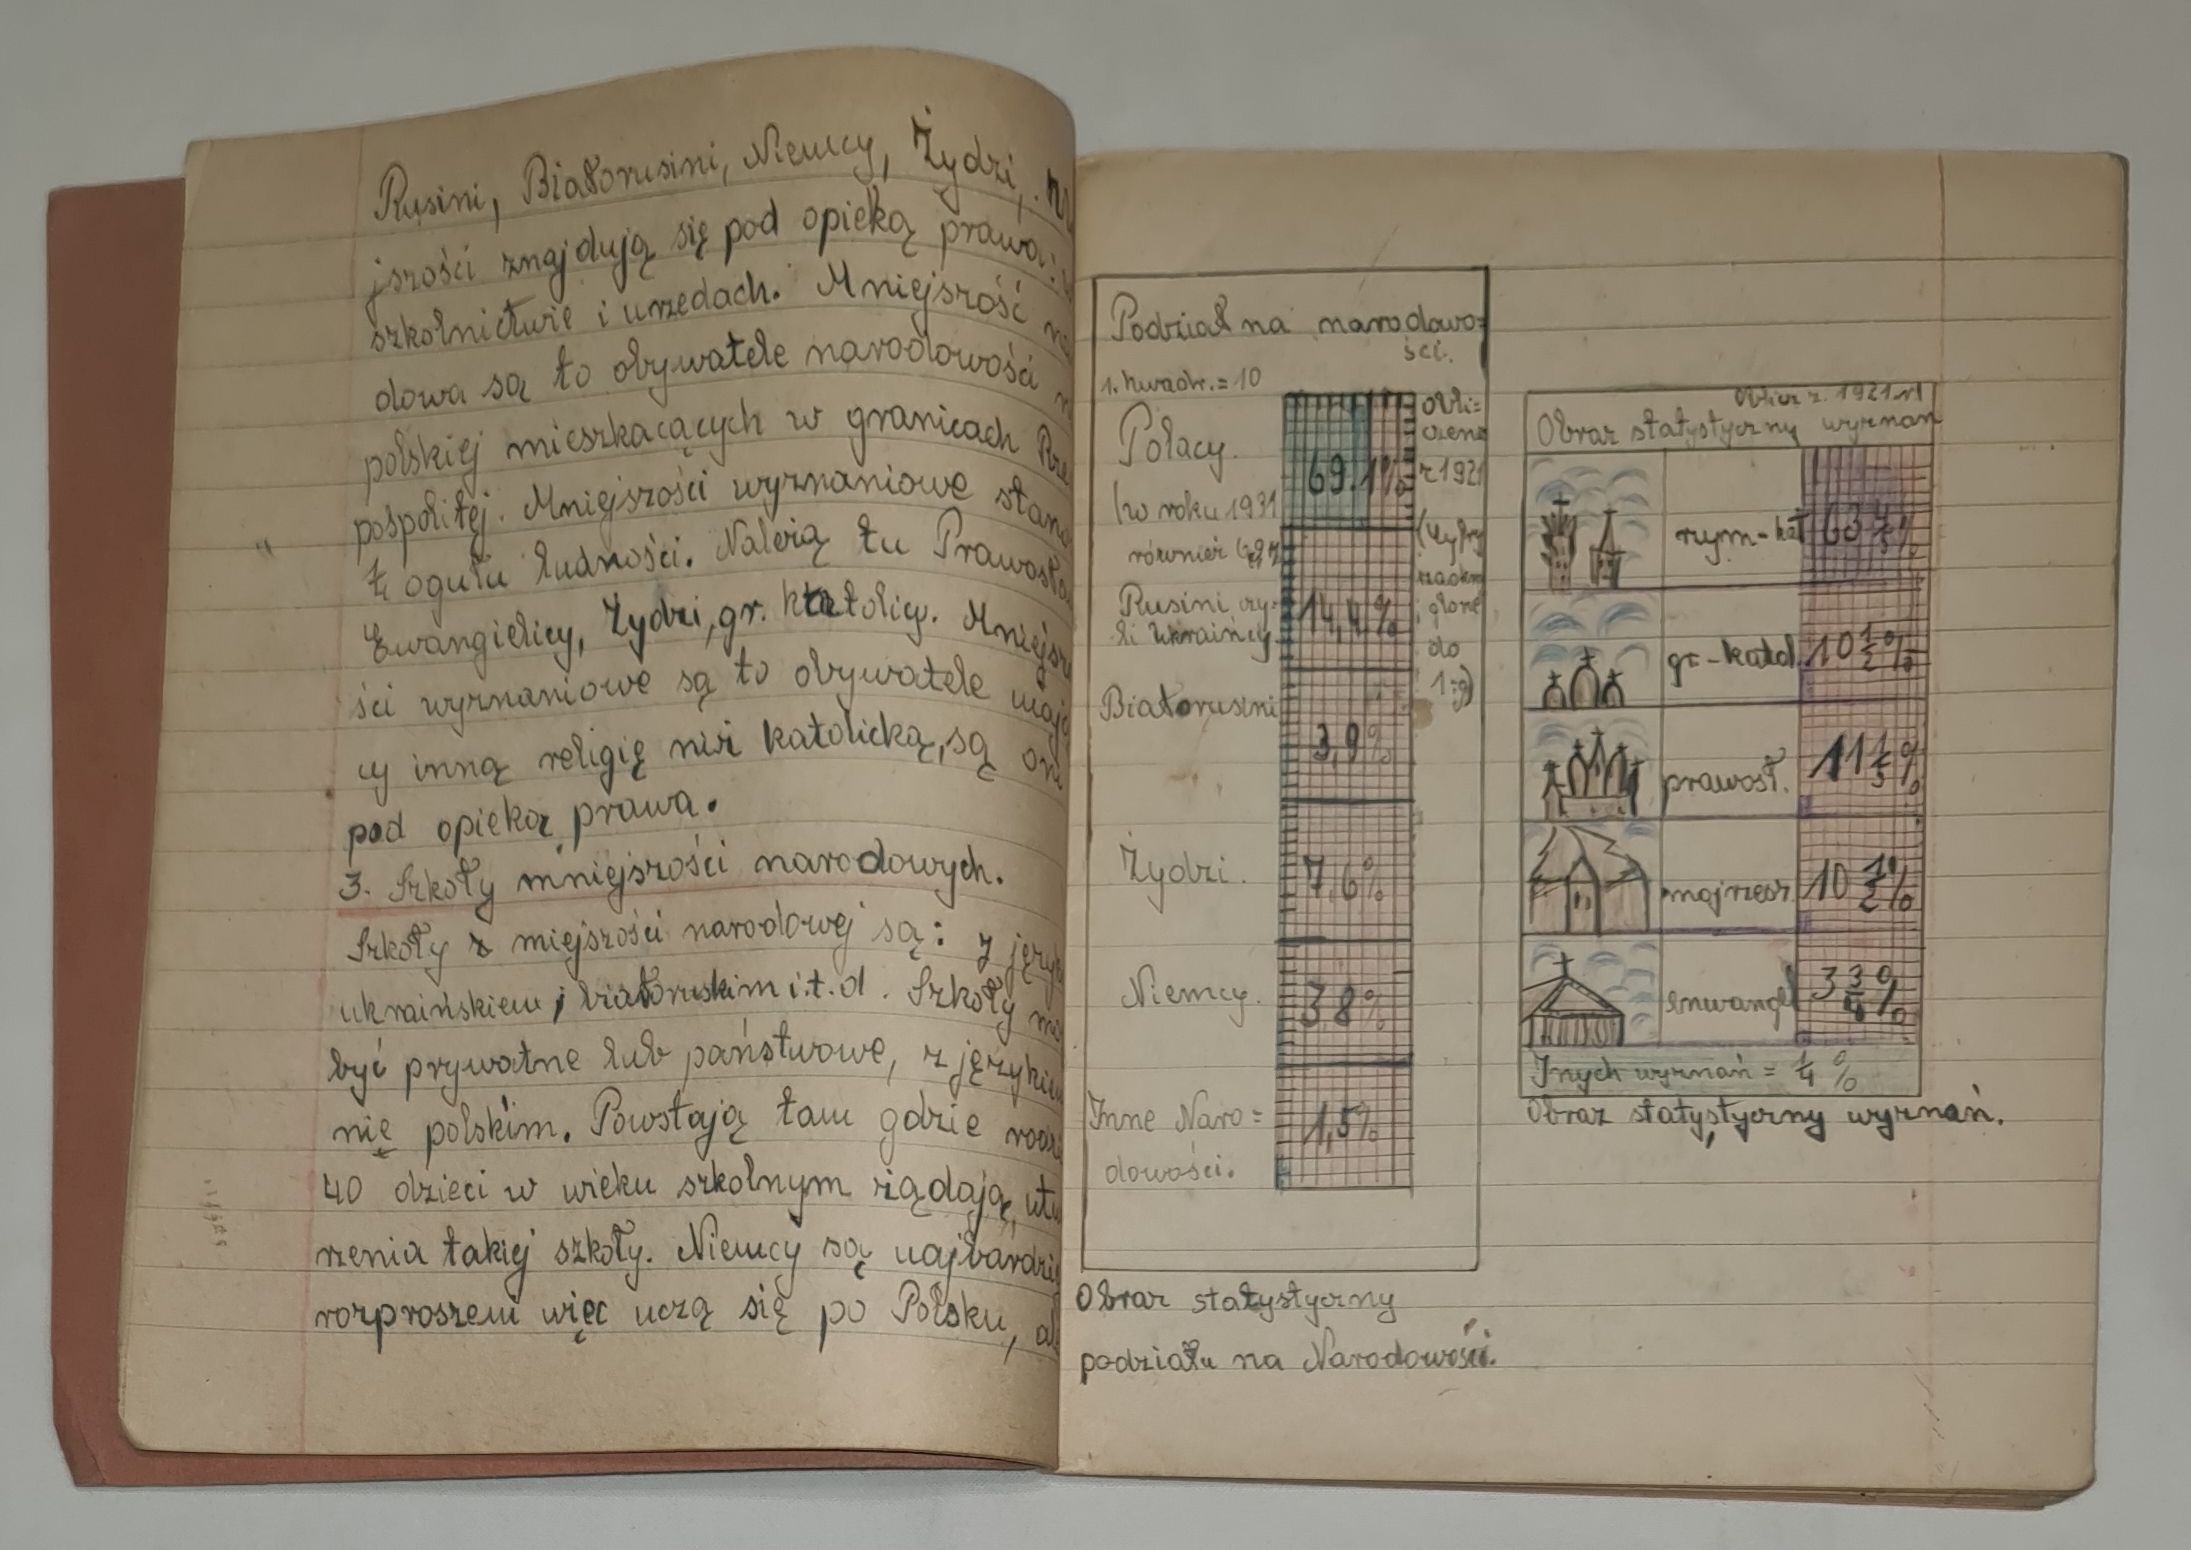 Rusini, Białorusini, Niemcy, Żydzi,
jszości znajdują się pod opieką prawa:
szkolnictwie i urzedach. Mniejszość
dowa są to obywatele narodowości
polskiej mieszkacących w granicach Rze
pospolitej. Mniejszości wyznaniowe stano
¼ ogułu ludności. Nalerzą tu Prawosła
Ewangielicy, Żydzi, gr. katolicy. Mniejszo
ści wyznaniowe są to obywatele mają
cy inną religię niż katolicką, są oni
pod opieką prawa.
3. Szkoły mniejszości narodowych.
Szkoły z miejszości narodowej są: z język
ukraińskiem, białoruskim i.t.d. Szkoły mo
być prywatne lub państwowe, z językim
nie polskim. Powstają tam gdzie rodzi
40 dzieci w wieku szkolnym rządają, utw
rzenia takiej szkoły. Niemcy są najbardzie
rozproszeni więc uczą się po Polsku, al
Podział na narodowo=
ści.
1. kwadr. = 10
Polacy. 69.1%
(w roku 1931
również
obli=
czeno
z 1921
(cyfry
zaokrą
glone
do
Rusini czy- 14,4%
li Ukraińcy
Białorusini 3,9%
Żydzi. 7,6%
Niemcy. 3,8%
Inne Naro= 1,5%
dowości.
Obraz statystyczny
podziału na Narodowości.
1921 r
Obraz statystyczny wyznań
rzym-kat 63
gr-katol. 10 ½ %
prawosł.
mojżesz. 10 ½ %
3 ¾ %
Inych wyznań = ¼ %
Obraz statystyczny wyznań.